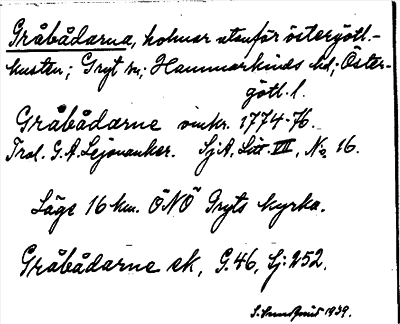 Gråbådarna, holmar utanför östergötl.-
kusten; Gryt sn; Hammarkinds hd; Öster-
götl. l.
Gråbådarne omkr. 1774-76.
Trol. G. A. Lejonanker. SjA, Litt VII, No 16.
Läge 16 km. ÖNÖ Gryts kyrka.
Gråbådarne ek, G. 46, Sj: 252.
1939.